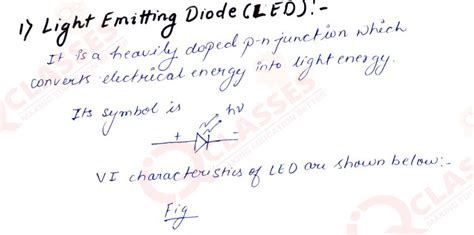 1) Light Emitting Diode (LED):-
It is a heavily doped p-n junction which
converts electrical energy into light energy.
Its symbol is
hν
+ -
VI characteristics of LED are shown below:-
Fig
CLASSES
CLASSES
CLASS